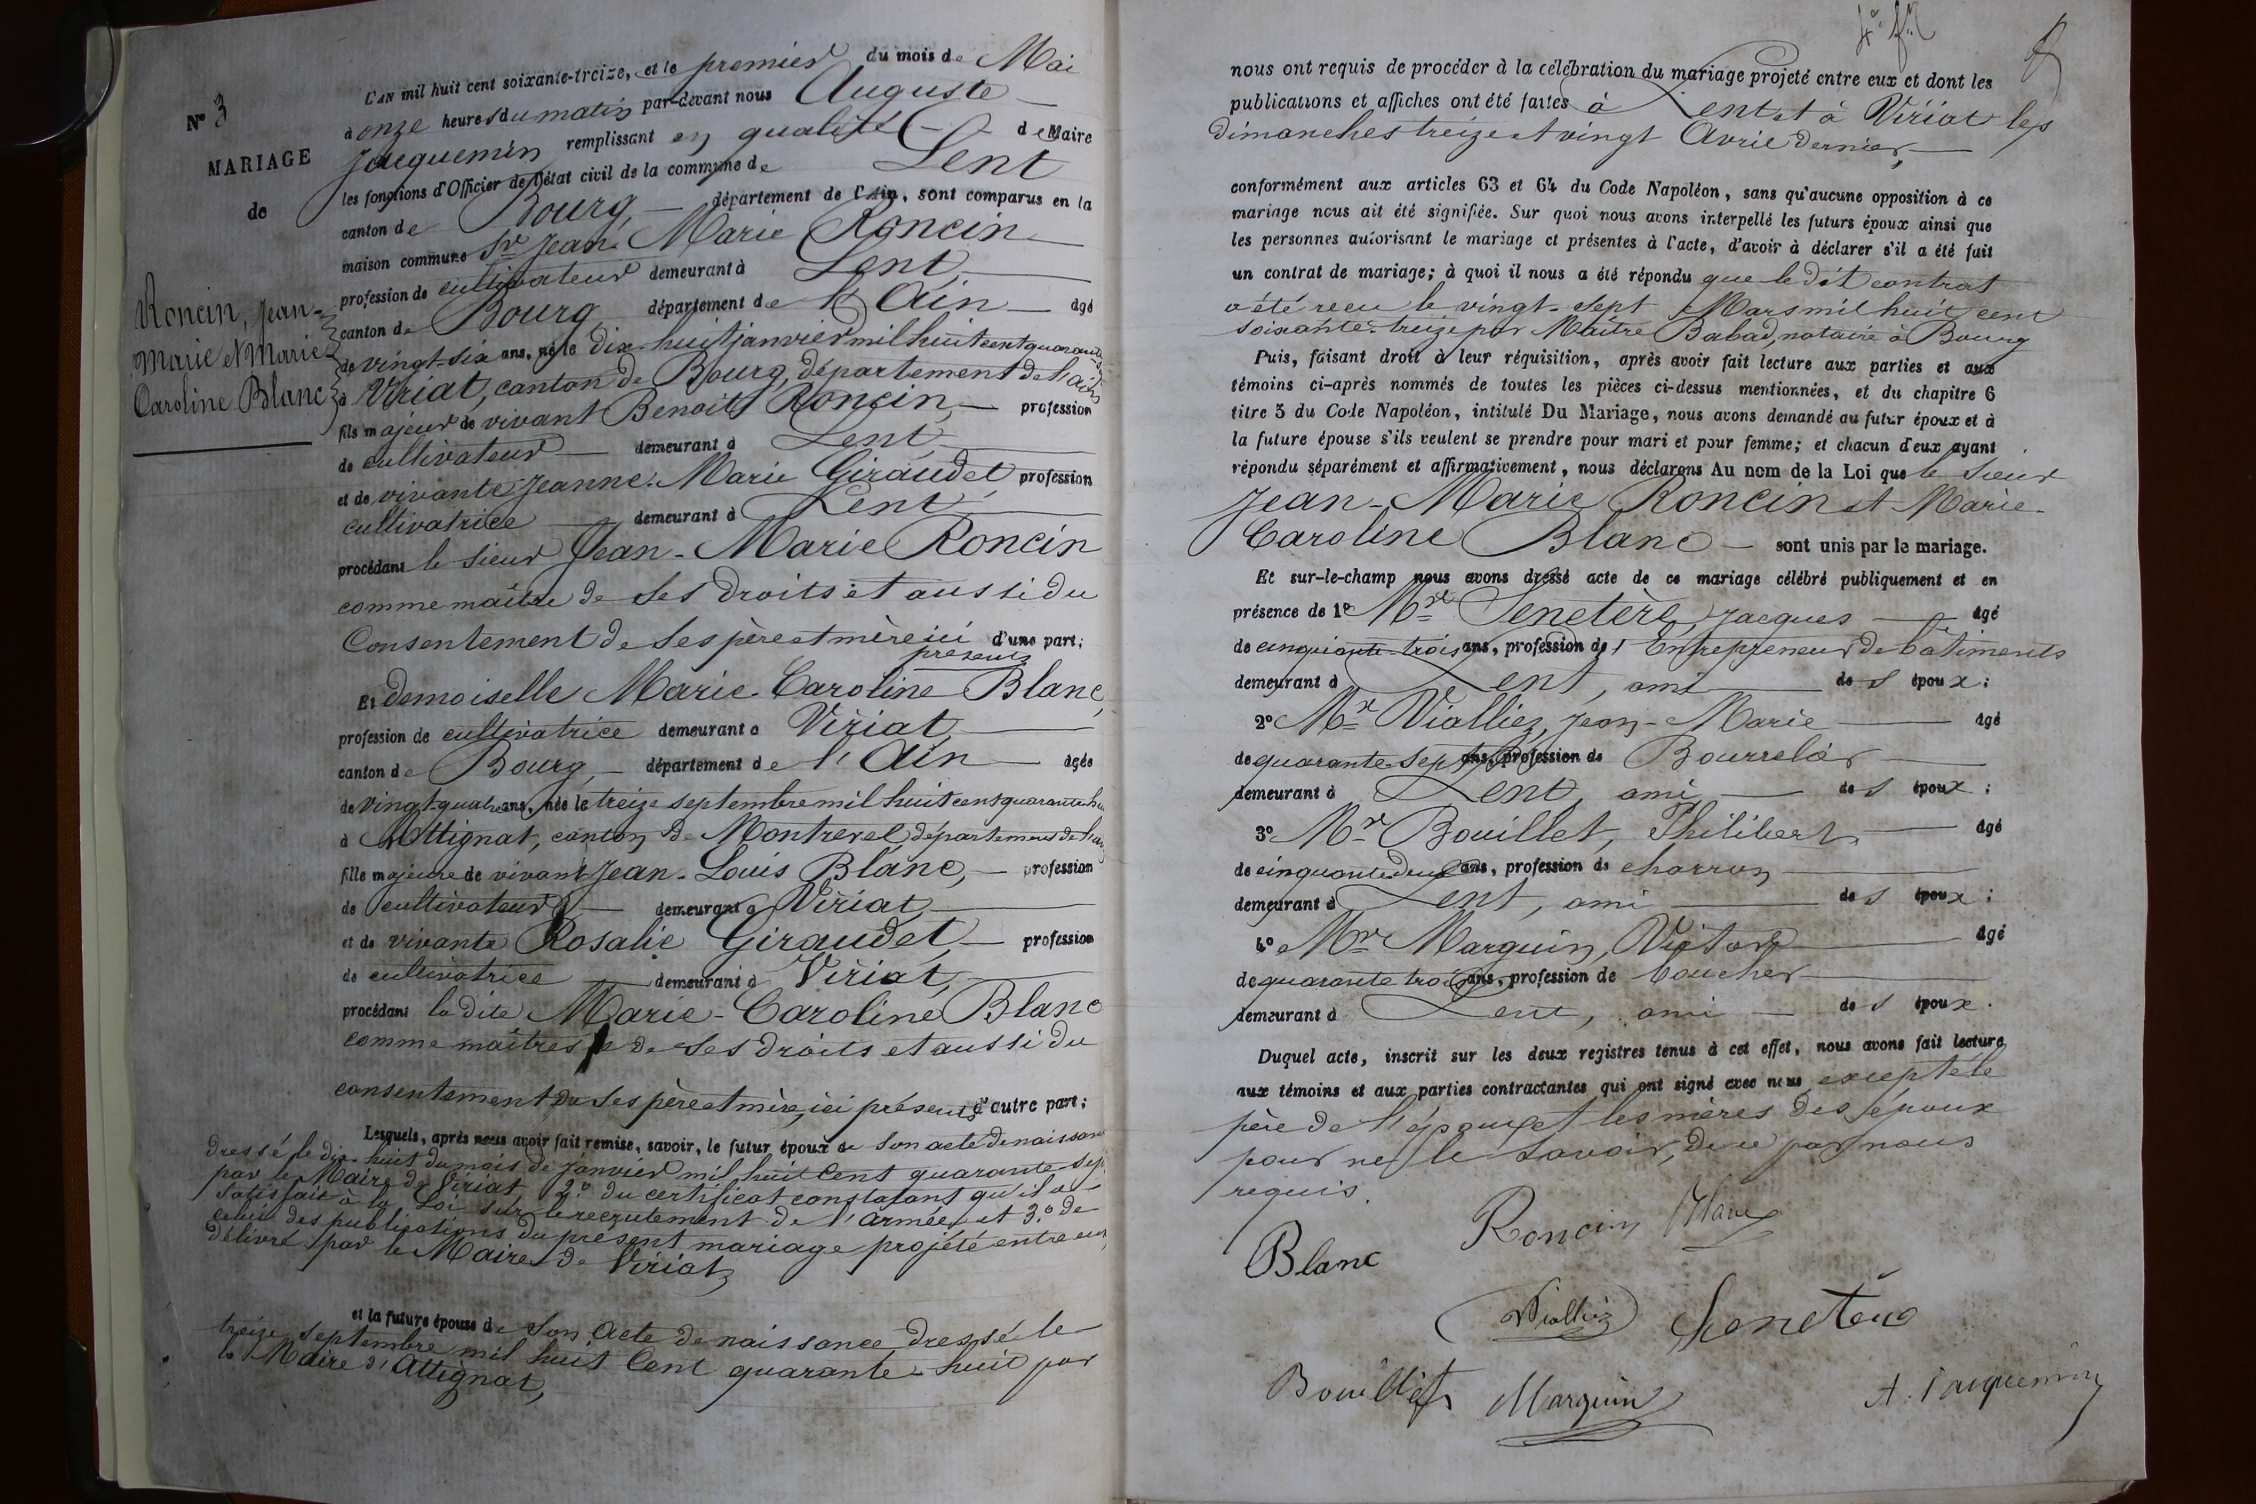 N° 3
MARIAGE
de
Roncin, Jean-
Marie et Marie
Caroline Blanc
L'AN mil huit cent soixante-treize, et le premier du mois de Mai
à onze heures du matin par-devant nous Auguste
Jacquemin remplissant en qualité de Maire
les fonctions d'Officier de l'état civil de la commune de Lent
canton de Bourg, département de l'Ain, sont comparus en la
maison commune Sr Jean-Marie Roncin
profession de cultivateur demeurant à Lent,
canton de Bourg département de l'Ain âgé
de vingt-six ans, né le dix-huit janvier mil huit cent quarante-sept
à Viriat, canton de Bourg, département de l'Ain
fils majeur de vivant Benoit Roncin, profession
de cultivateur demeurant à Lent
et de vivante Jeanne-Marie Giraudet, profession
cultivatrice demeurant à Lent,
procédant le sieur Jean-Marie Roncin
comme maître de ses droits et aussi du
Consentement de ses père et mère ici d'une part;
présents
Et demoiselle Marie-Caroline Blanc,
profession de cultivatrice demeurant à Viriat,
canton de Bourg, département de l'Ain âgée
de vingt-quatre ans, née le treize septembre mil huit cent quarante-hu
à Attignat, canton de Montrevel, département de l'Ain
fille majeure de vivant Jean-Louis Blanc, profession
de cultivateur demeurant à Viriat,
et de vivante Rosalie Giraudet, profession
de cultivatrice demeurant à Viriat,
procédant la dite Marie-Caroline Blanc
comme maîtresse de ses droits et aussi du
consentement de ses père et mère, ici présents d'autre part;
Lesquels, après nous avoir fait remise, savoir, le futur époux de son acte de naissance
dressé le dix-huit du mois de janvier mil huit cent quarante-sept
par le Maire de Viriat, 2° du certificat constatant qu'il a
satisfait à la Loi sur le recrutement de l'armée, et 3° de
celui des publications du présent mariage projeté entre eux,
délivré par le Maire de Viriat,
et la future épouse de son acte de naissance, dressé le
treize septembre mil huit cent quarante-huit par
le Maire d'Attignat,
nous ont requis de procéder à la célébration du mariage projeté entre eux et dont les
publications et affiches ont été faites à Lent et à Viriat les
dimanches treize et vingt Avril dernier,
conformément aux articles 63 et 64 du Code Napoléon, sans qu'aucune opposition à ce
mariage nous ait été signifiée. Sur quoi nous avons interpellé les futurs époux ainsi que
les personnes autorisant le mariage et présentes à l'acte, d'avoir à déclarer s'il a été fait
un contrat de mariage; à quoi il nous a été répondu que le dit contrat
a été reçu le vingt-sept Mars mil huit cent
soixante-treize par Maître Babad, notaire à Bourg
Puis, faisant droit à leur réquisition, après avoir fait lecture aux parties et aux
témoins ci-après nommés de toutes les pièces ci-dessus mentionnées, et du chapitre 6
titre 5 du Code Napoléon, intitulé Du Mariage, nous avons demandé au futur époux et à
la future épouse s'ils veulent se prendre pour mari et pour femme; et chacun d'eux ayant
répondu séparément et affirmativement, nous déclarons Au nom de la Loi que le sieur
Jean-Marie Roncin et Marie-
Caroline Blanc sont unis par le mariage.
Et sur-le-champ nous avons dressé acte de ce mariage célébré publiquement et en
présence de 1° Mr Senetère, Jacques âgé
de cinquante-trois ans, profession de Entrepreneur de bâtiments
demeurant à Lent, ami des époux;
2° Mr Vialliez, Jean-Marie âgé
de quarante-sept ans, profession de Bourrelier
demeurant à Lent, ami des époux;
3° Mr Bouillet, Philibert âgé
de cinquante-deux ans, profession de charron
demeurant à Lent, ami des époux;
4° Mr Marguin, Victor âgé
de quarante trois ans, profession de boucher
demeurant à Lent, ami des époux.
Duquel acte, inscrit sur les deux registres tenus à cet effet, nous avons fait lecture
aux témoins et aux parties contractantes qui ont signé avec nous excepté le
père de l'époux et les mères des époux
pour ne le savoir, de ce par nous
requis.
Roncin Blanc
Blanc
Vialliez Senetère
Bouillet Marguin A. Jacquemin